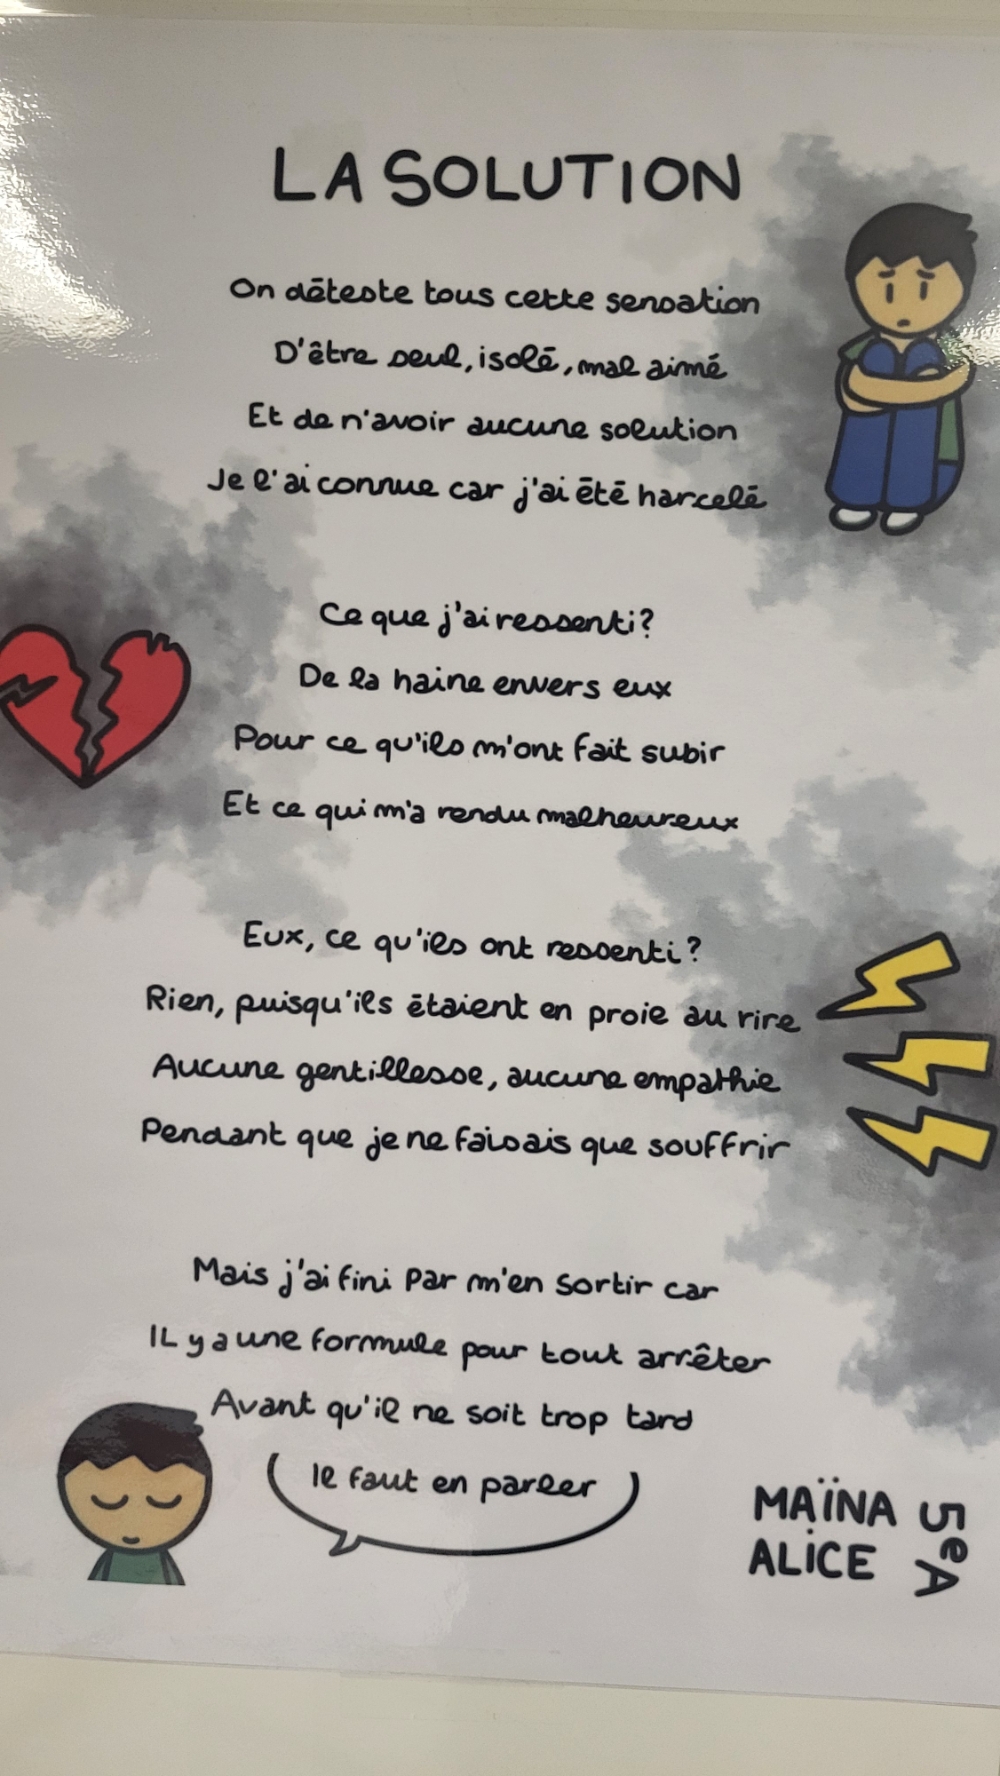 LA SOLUTION
On déteste tous cette sensation
D'être seul, isolé, mal aimé
Et de n'avoir aucune solution
Je l'ai connue car j'ai été harcelé
Ce que j'ai ressenti?
De la haine envers eux
Pour ce qu'ils m'ont fait subir
Et ce qui m'a rendu malheureux
Eux, ce qu'ils ont ressenti?
Rien, puisqu'ils étaient en proie au rire
Aucune gentillesse, aucune empathie
Pendant que je ne faisais que souffrir
Mais j'ai fini par m'en sortir car
IL y a une formule pour tout arrêter
Avant qu'il ne soit trop tard
Il faut en parler
MAÏNA
ALICE
5eA